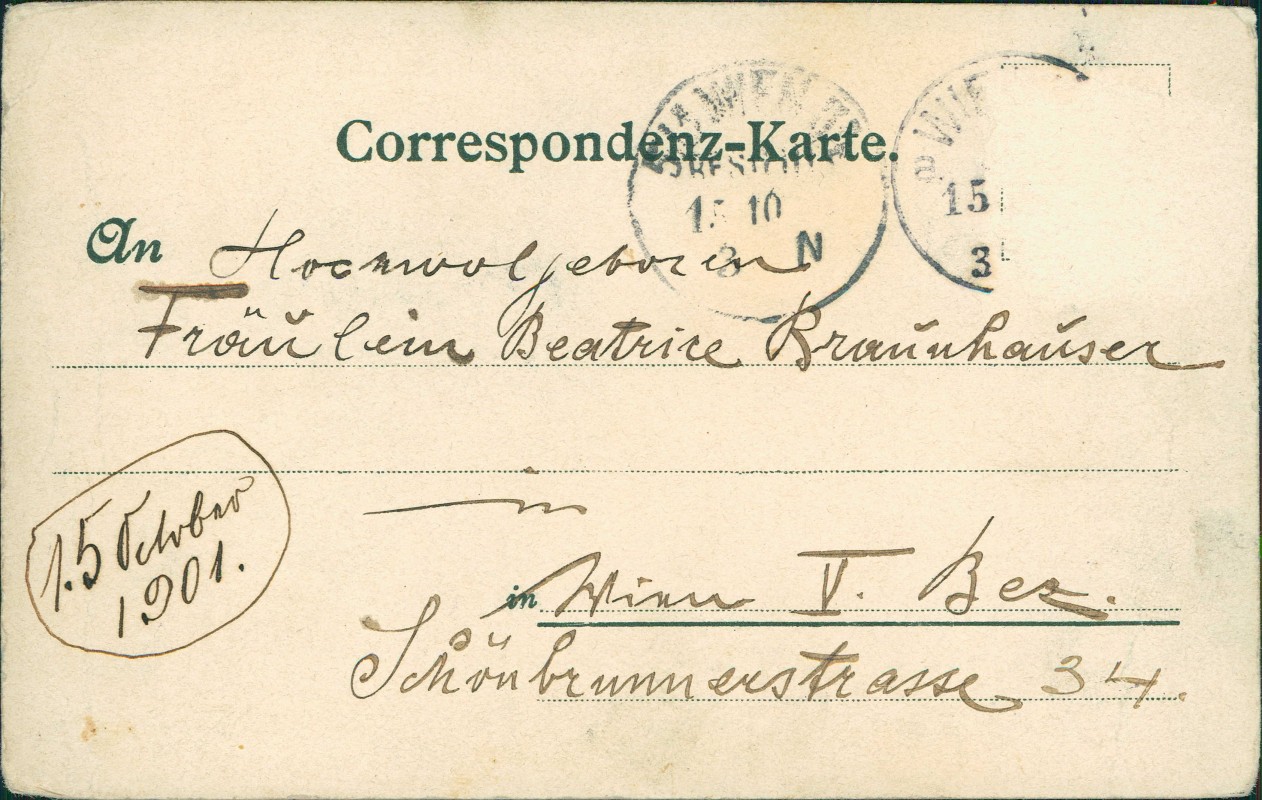 Correspondenz-Karte.
WIEN
15 10
3 N
WIE
15
3
An Hochwolgeboren
Fräulein Beatrice Braunhauser
15 October
1901.
in
in Wien V. Bez.
Schönbrunnerstrasse 34.